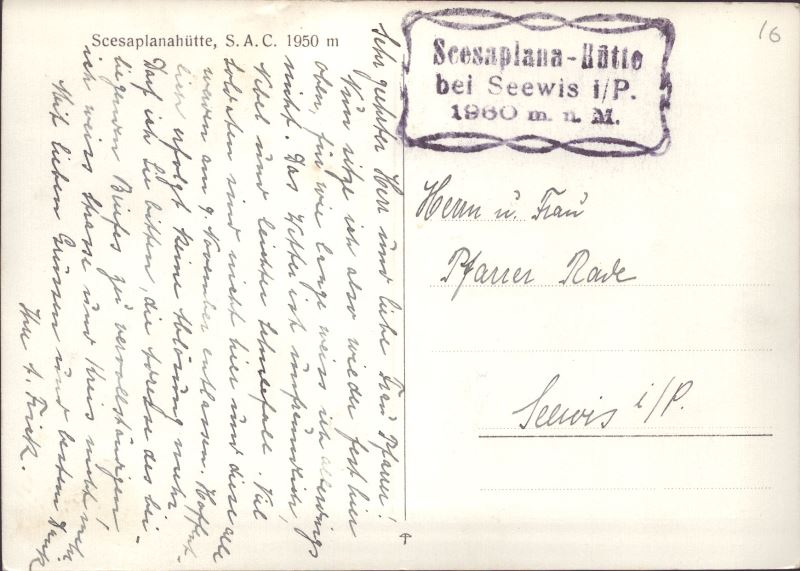 Scesaplanahütte, S. A. C. 1950 m
Scesaplana-Hütte
bei Seewis i/P.
1960 m. ü. M.
16
Herrn u. Frau
Pfarrer Rade
Seewis i/P.
Sehr geehrter Herr und liebe Frau Pfarrer!
Nun sitze ich also wieder fest hier
oben, für wie lange weiss ich allerdings
nicht. Das Wetter ist unfreundlich,
Nebel und leichter Schneefall. Viel
Soldaten sind nicht hier und diese
werden am 9. November entlassen. Hoffent-
lich erfolgt keine Ablösung mehr.
Darf ich Sie bitten, die Adresse des bei-
liegenden Briefes zu vervollständigen,
ich weiss Strasse und Kreis nicht mehr.
Mit lieben Grüssen und bestem Dank
Ihre A.